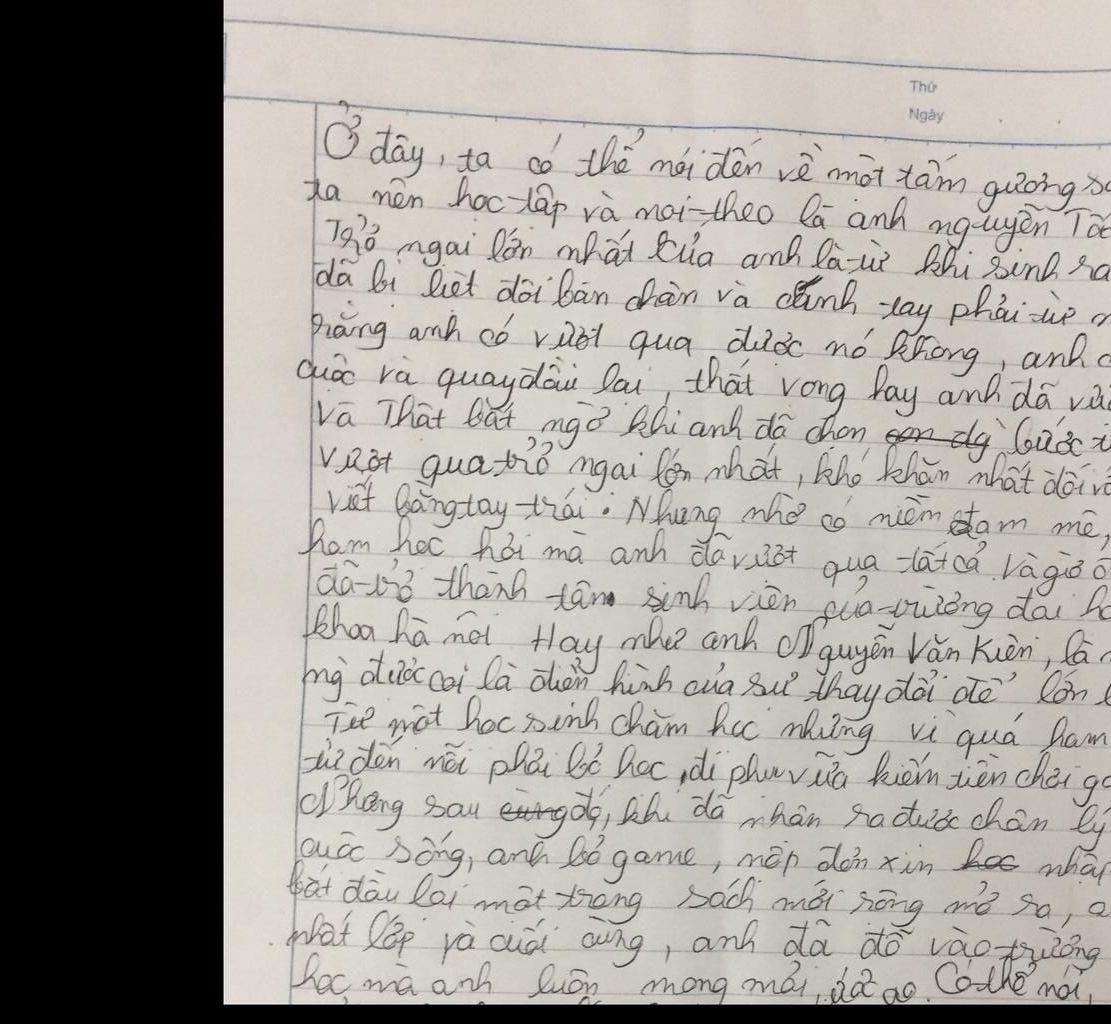 Thứ
Ngày
Ở đây, ta có thể nói đến về một tấm gương
ta nên học tập và noi theo là anh nguyễn
Trở ngại lớn nhất của anh là từ khi sinh ra
đã bị liệt đôi bàn chân và cánh tay phải từ
rằng anh có vượt qua được nó không, anh
cuộc và quay đầu lại, thất vọng hay anh đã
và Thật bất ngờ khi anh đã chọn bước
vượt qua trở ngại lớn nhất, khó khăn nhất đối
viết bằng tay trái. Nhưng nhờ có niềm đam mê,
ham học hỏi mà anh đã vượt qua tất cả và giờ
đã trở thành tân sinh viên của trường đại
khoa hà nội Hay như anh Nguyễn Văn Kiên, là
ng được coi là điển hình của sự thay đổi để lớn
Từ một học sinh chăm học nhưng vì quá ham
tử đến nỗi phải bỏ học, đi phụ vữa kiếm tiền chơi
Nhưng sau đó, khi đã nhận ra được chân lý
cuộc sống, anh bỏ game, nộp đơn xin
bắt đầu lại một trang sách mới rộng mở ra,
nhất lớp và cuối cùng, anh đã đỗ vào trường
học mà anh luôn mong mỏi, ước ao. Có thể nói,